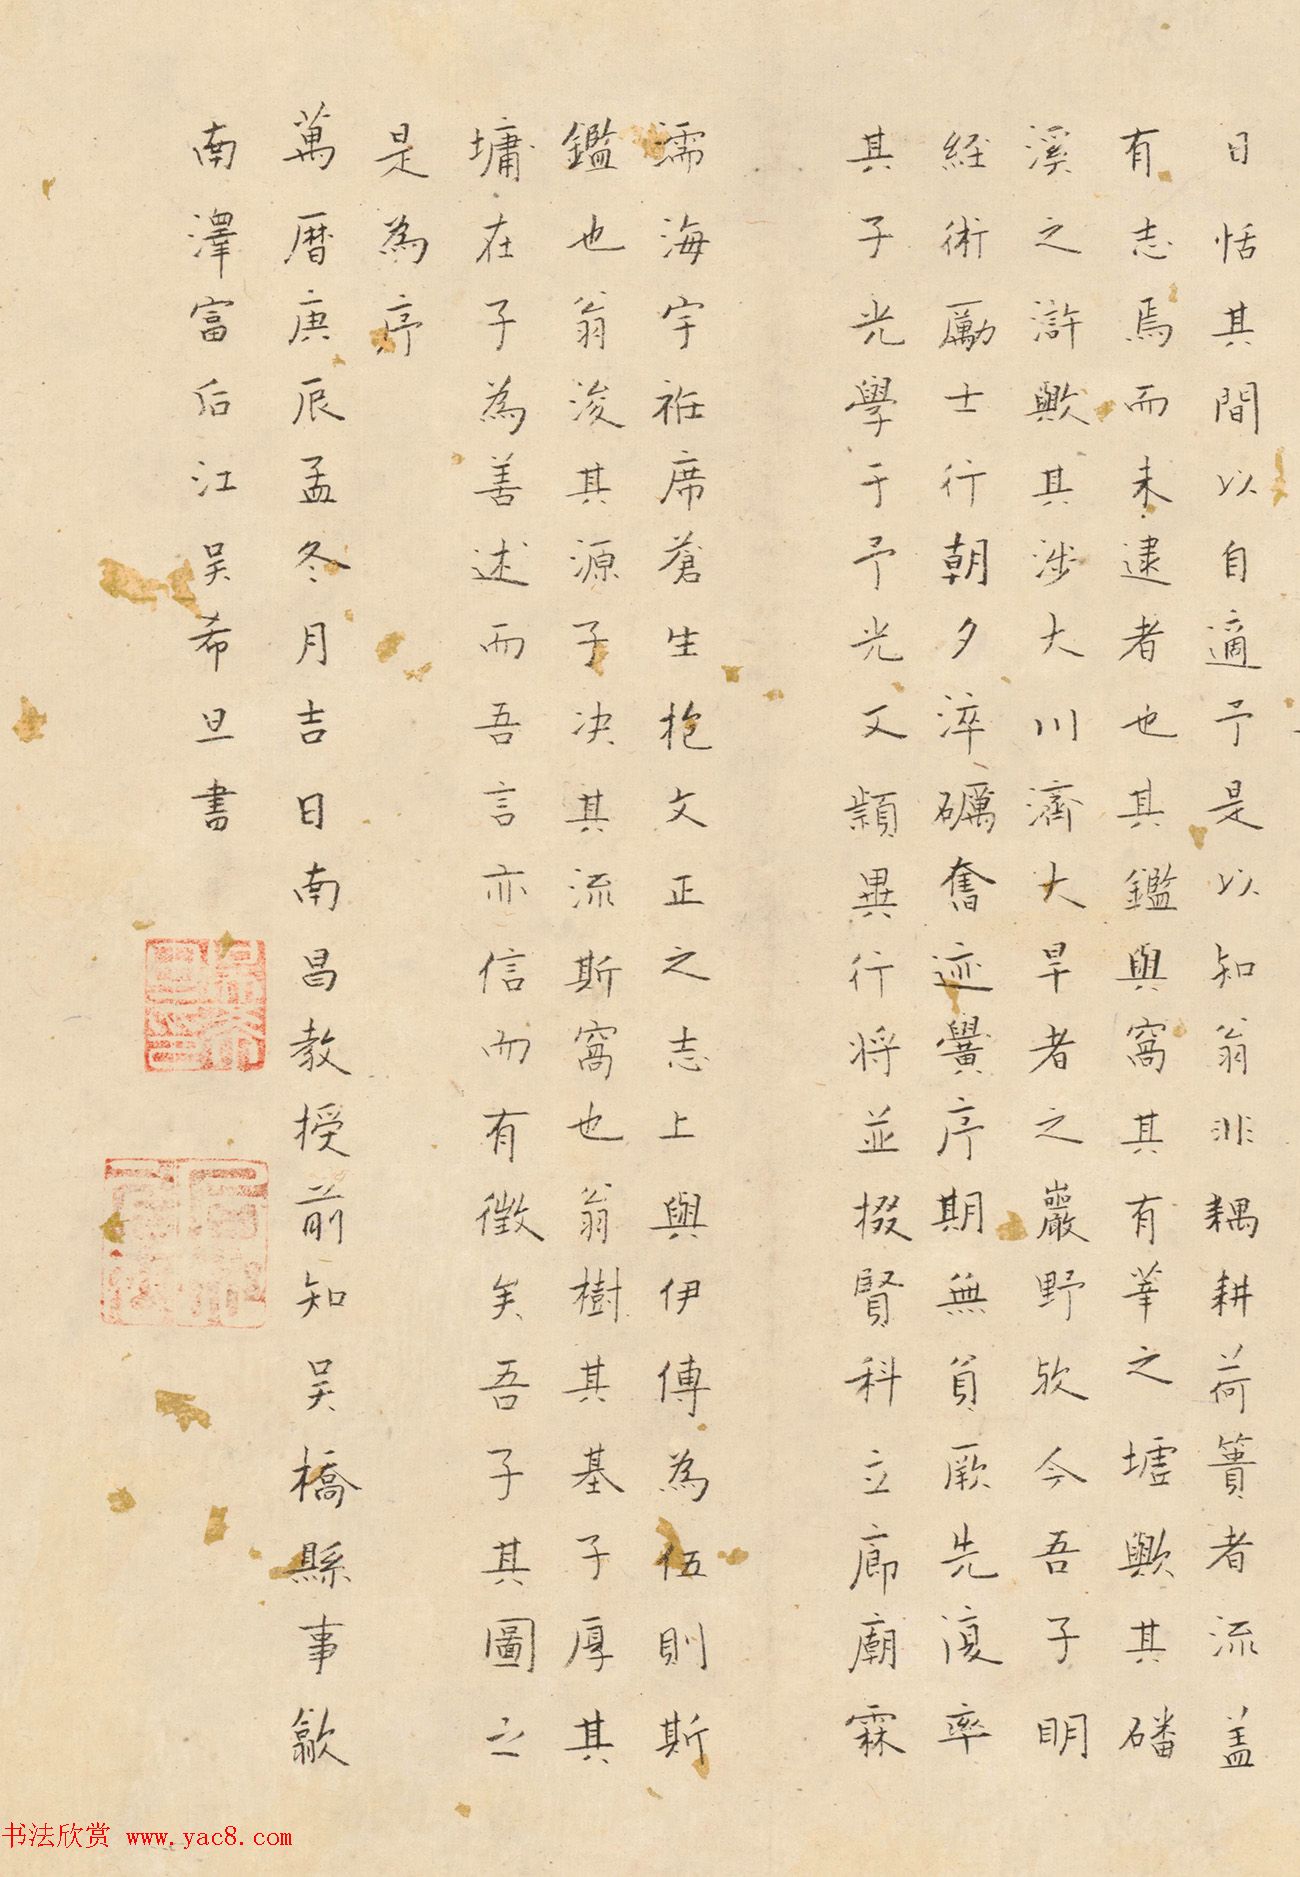 日恬其間以自適予是以知翁非耦耕荷蕢者流盖
有志焉而未逮者也其鑑與窩其有莘之墟歟其磻
溪之滸歟其涉大川濟大旱者之巖野欤今吾子明
経術勵士行朝夕淬礪奮迹黌序期無負厥先復率
其子光學于予光又穎異行将並掇賢科立廊廟霖
濡海宇袵席蒼生抱文正之志上與伊傅為伍則斯
鑑也翁浚其源子决其流斯窩也翁樹其基子厚其
墉在子為善述而吾言亦信而有徴矣吾子其圖之
是為序
萬曆庚辰孟冬月吉日南昌教授前知吴橋縣事歙
南澤富后江吴希旦書
书法欣赏 www.yac8.com